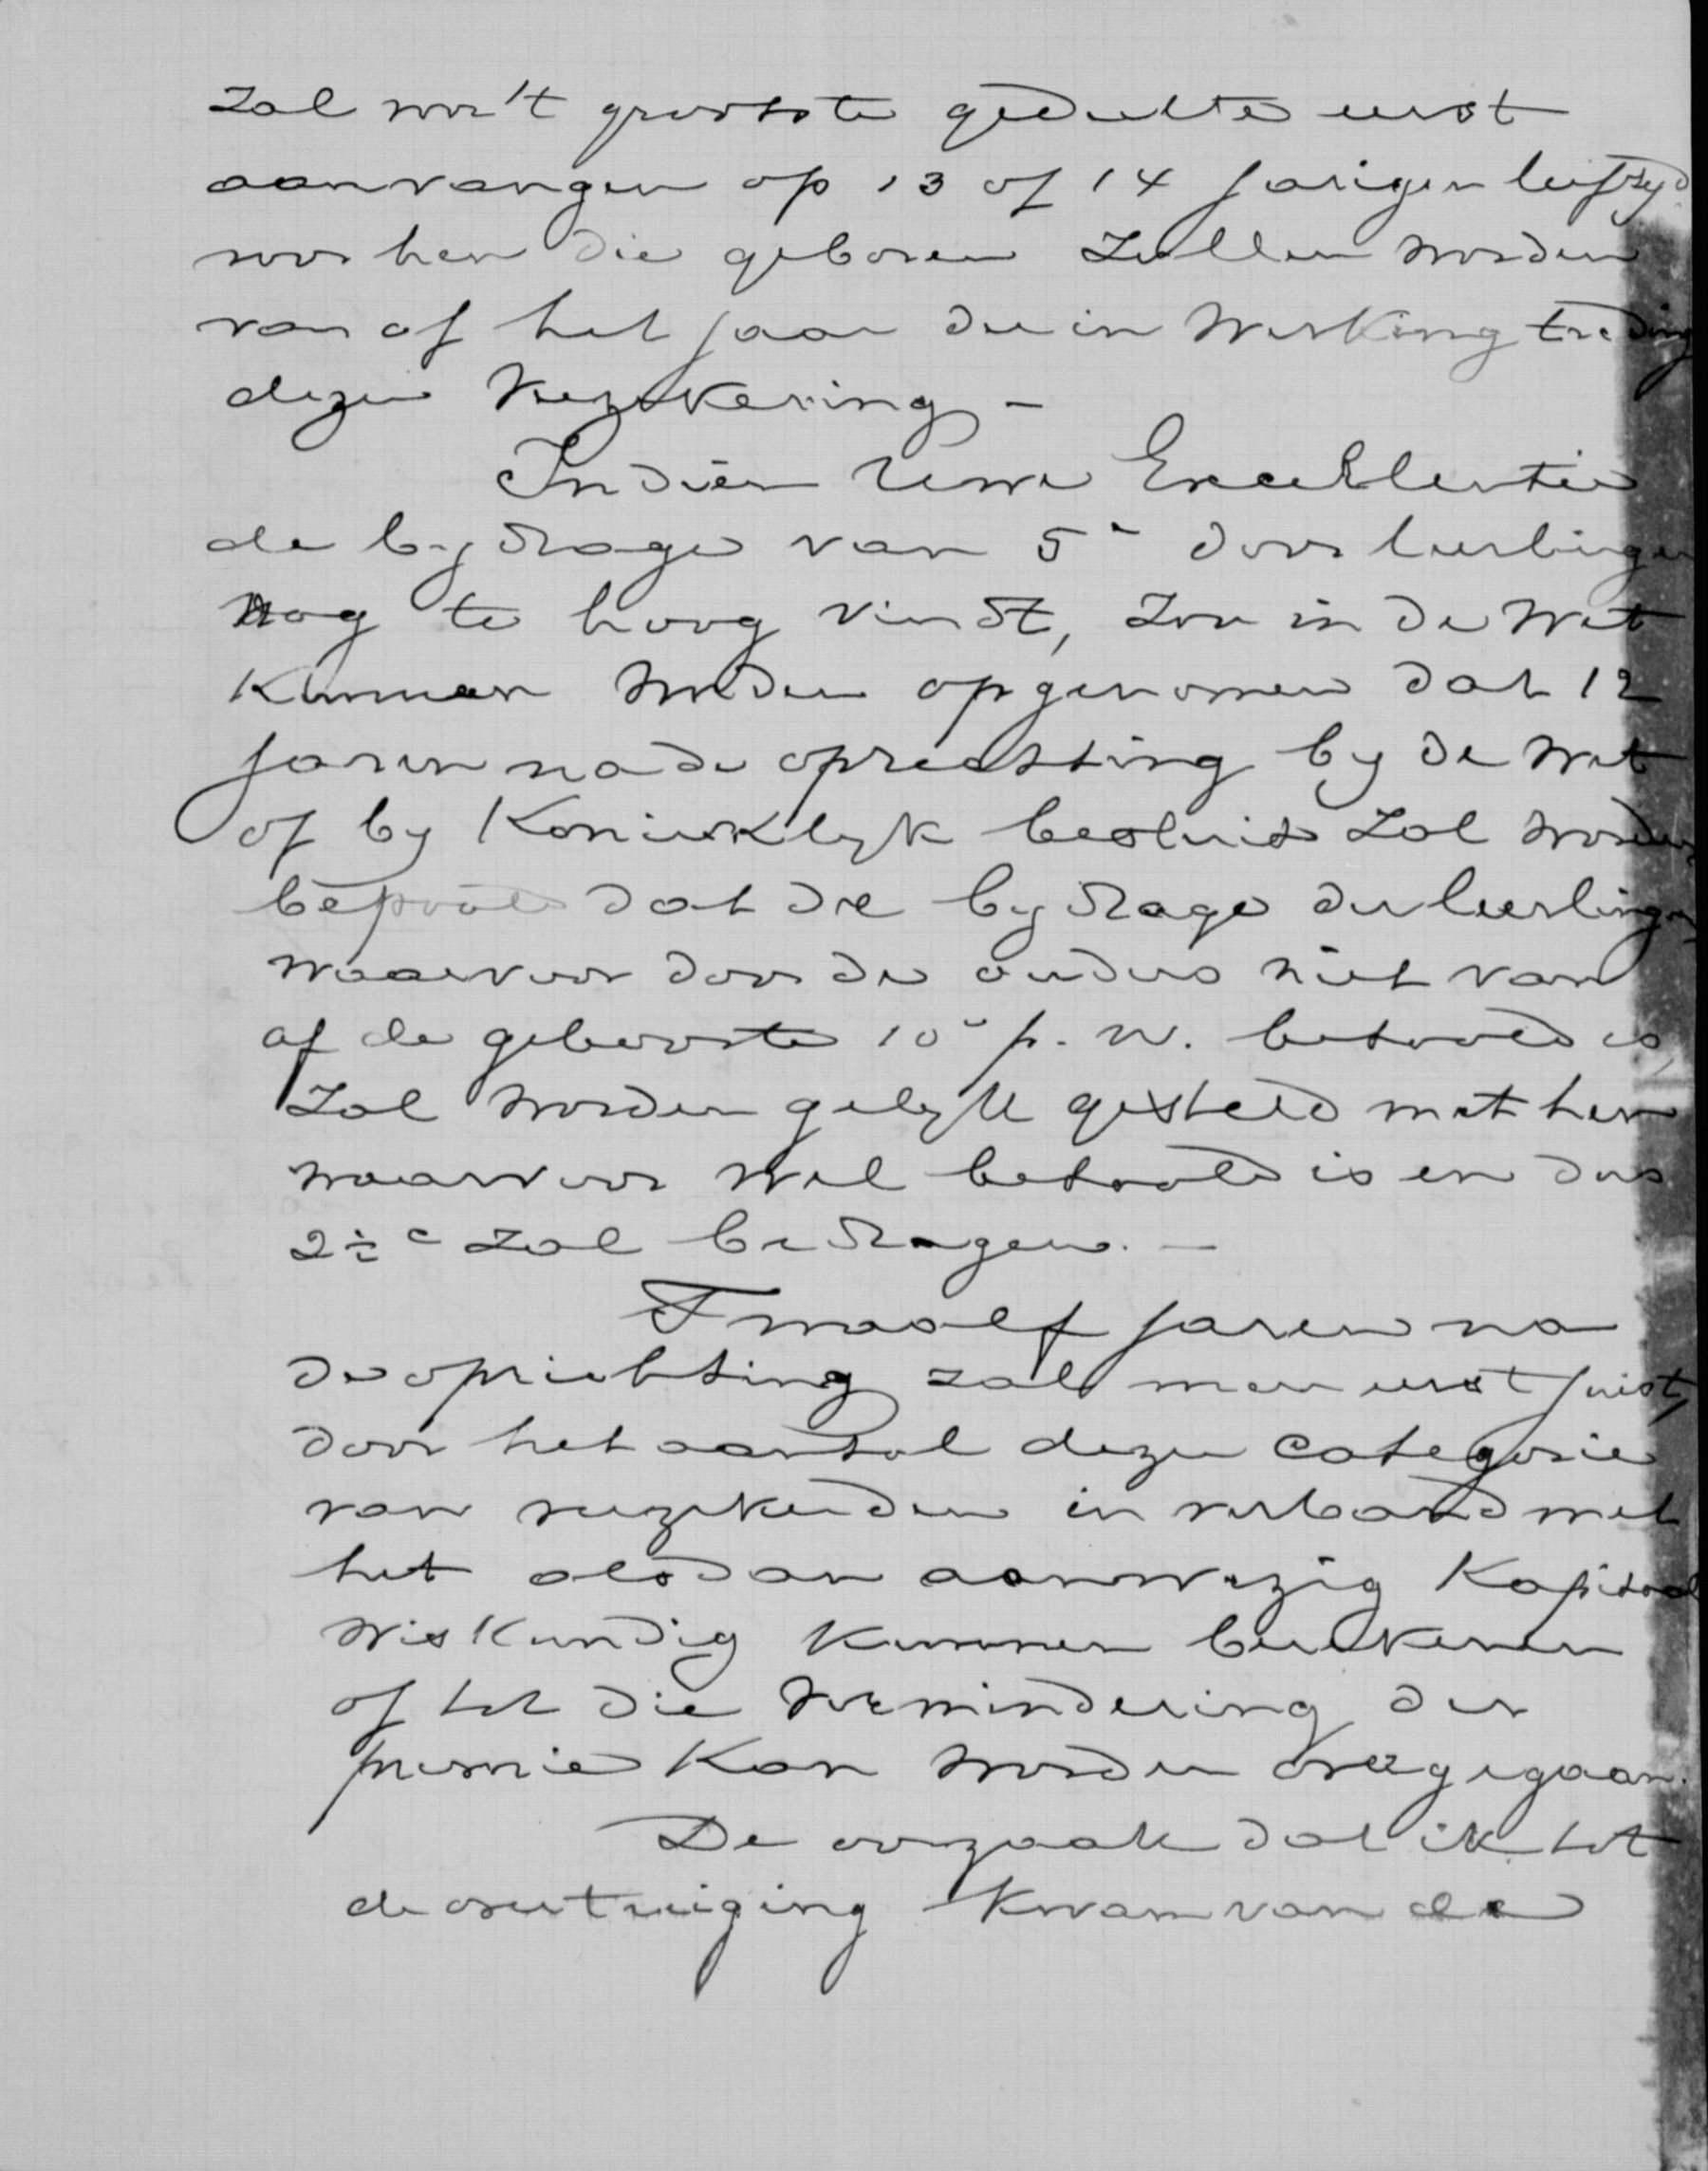 zal voor 't grootste gedeelte eerst
aanvangen op 13 of 14 jarigen leeftyd
voor hen die geboren zullen worden
van af het jaar der in werking treding
dezer verzekering –
Indien Uwe Excellentie
de bydrage van 5c door leerlingen
nog te hoog vindt, zou in de wet
kunnen worden opgenomen dat 12
jaren na de oprechting by de wet
of by Koninklyk besluit zal worden
bepaald dat die bydrage der leerlingen
waarvoor door de ouders niet van
af de geboorte 10c p. w. betaald is,
zal worden gelyk gesteld met hen
waarvoor wel betaald is en dus
2½ c zal bedragen. –
Twaalf jaren na
de oprichting zal men eerst juist,
door het aantal dezer categorie
van verzekerden in verband met
het alsdan aanwezig Kapitaal
wiskundig kunnen berekenen
of tot die vermindering der
premie kan worden overgegaan.
De oorzaak dat ik tot
de overtuiging kwam van de